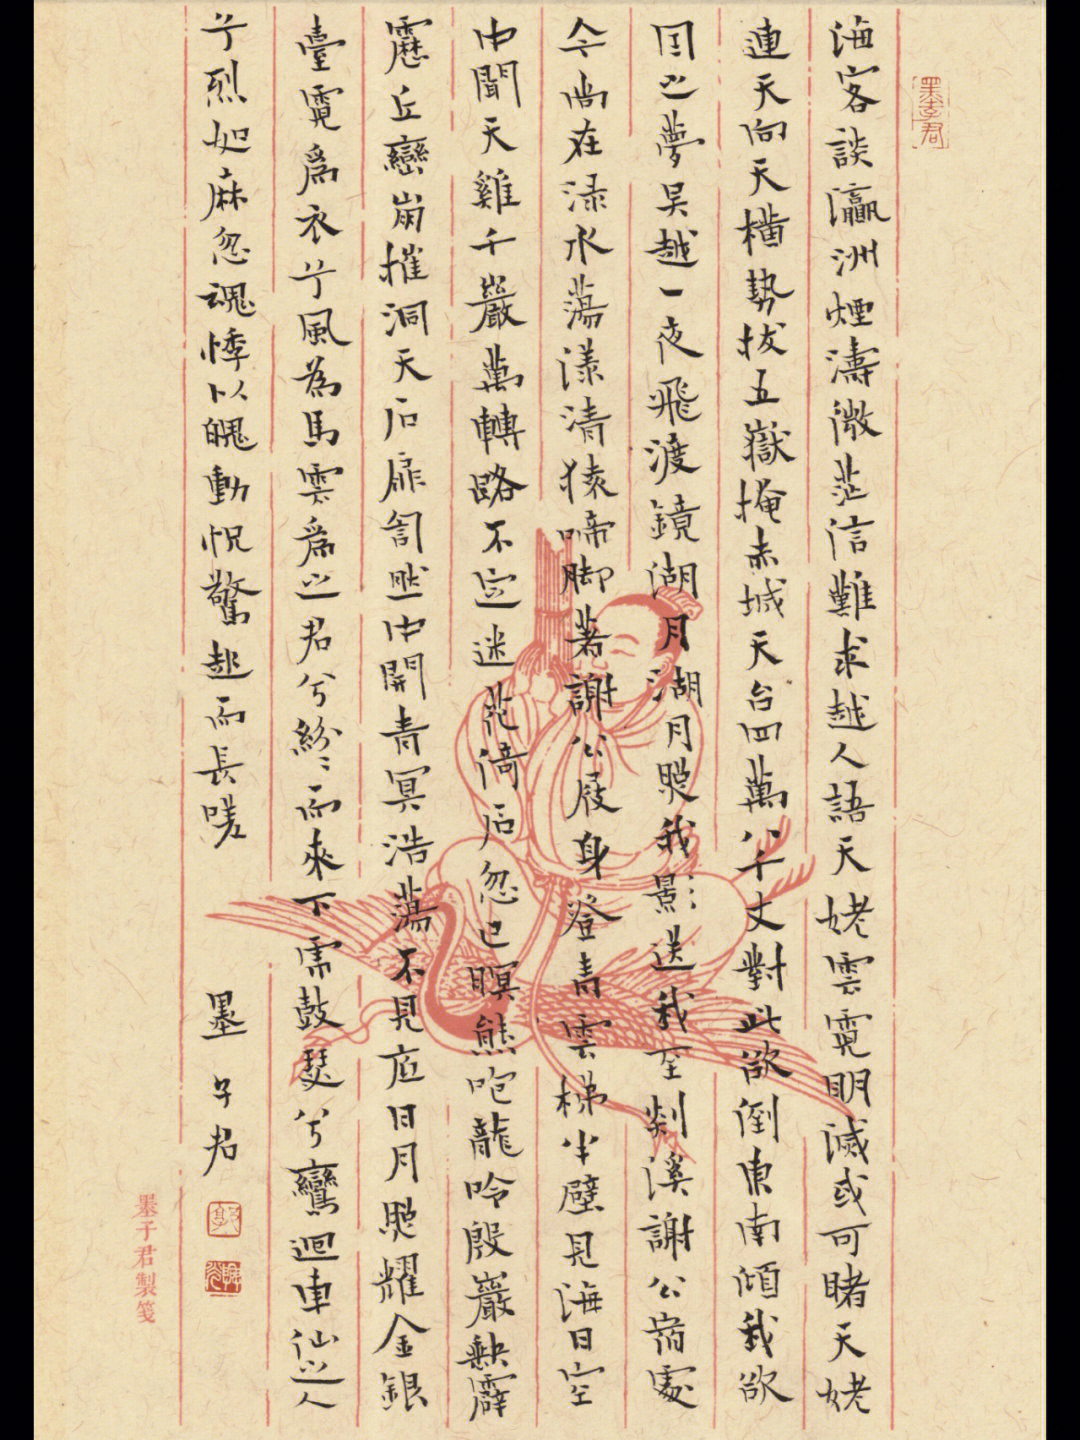 海客談瀛洲煙濤微茫信難求越人語天姥雲霓明滅或可睹天姥
連天向天橫勢拔五嶽掩赤城天台四萬八千丈對此欲倒東南傾我欲
因之夢吳越一夜飛渡鏡湖月湖月照我影送我至剡溪謝公宿處
今尚在淥水蕩漾清猿啼脚著謝公屐身登青雲梯半壁見海日空
中聞天雞千巖萬轉路不定迷花倚石忽已暝熊咆龍吟殷巖缺霹
靂丘巒崩摧洞天石扉訇然中開青冥浩蕩不見底日月照耀金銀
臺霓爲衣兮風為馬雲爲之君兮紛〻而來下虎鼓瑟兮鸞迴車仙之人
兮烈如麻忽魂悸以魄動怳驚起而長嗟
墨子君
墨子君製箋